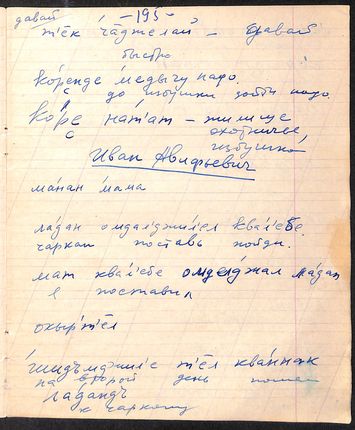 -195-
давай
тӭк ча́джелай - давай
быстро
Ко́ренде медычу надо.
до избушки дойти надо.
Ко́ре нат'ат - жилище
с охотничье,
избушка
Иван Авифьевич
ма́нан мама
ла́дан омдалджил'ел квал'ебе
чаркан поставь пойди.
мат квал'ебе омделджал ла́дан
я поставил
окыр'тӭл
шидъмджил'е тӭл ква́ннак
на второй день пошел
ладандъ
к чаркану